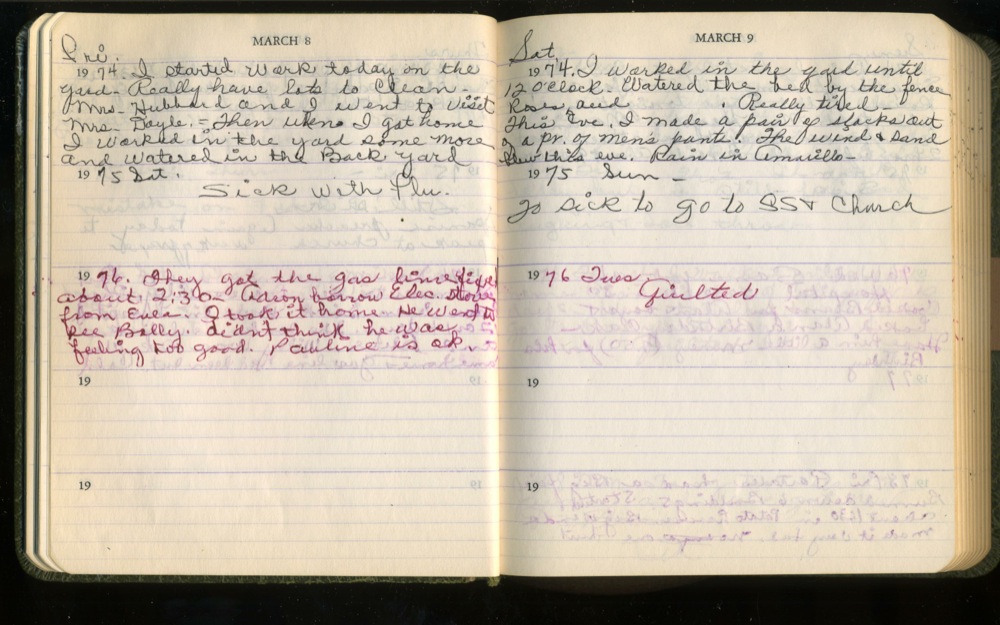 MARCH 8
Fri.
1974. I started work today on the
yard. Really have lots to clean.
Mrs. Hubbard and I went to visit
Mrs. Doyle. = Then when I got home
I worked in the yard some more
and watered in the Back yard
1975 Sat.
Sick with Flu.
1976. They got the gas line fixed
about 2:30 - borrow Elec. stove
from Eula. I took it home. He went to
see Bally. didn't think he was
feeling too good. Pauline is ok.
19
19
MARCH 9
Sat.
1974. I worked in the yard until
12 o'clock. Watered the bed by the fence
Roses, and . Really tired -
This Eve. I made a pair of slacks out
of a pr. of men's pants. The wind & sand
blew this eve. Rain in Amarillo -
1975 Sun -
To sick to go to SS & Church
1976 Tues -
Quilted
19
19